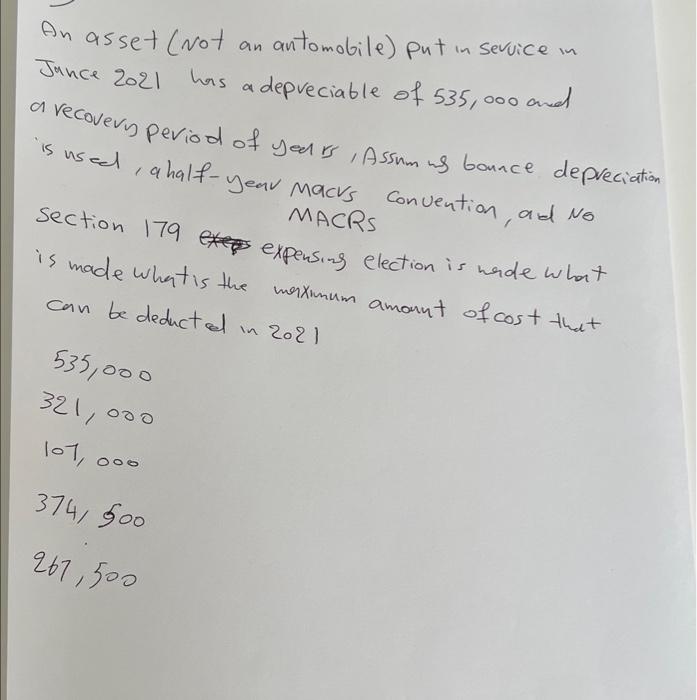 An asset (Not an automobile) put in service in
June 2021 has a depreciable of 535,000 and
a recovery period of years, Assuming bounce depreciation
is used, a half-year Macrs convention, and No
MACRS
section 179 expensing election is made what
is made what is the maximum amount of cost that
can be deducted in 2021
535,000
321,000
107,000
374,500
267,500